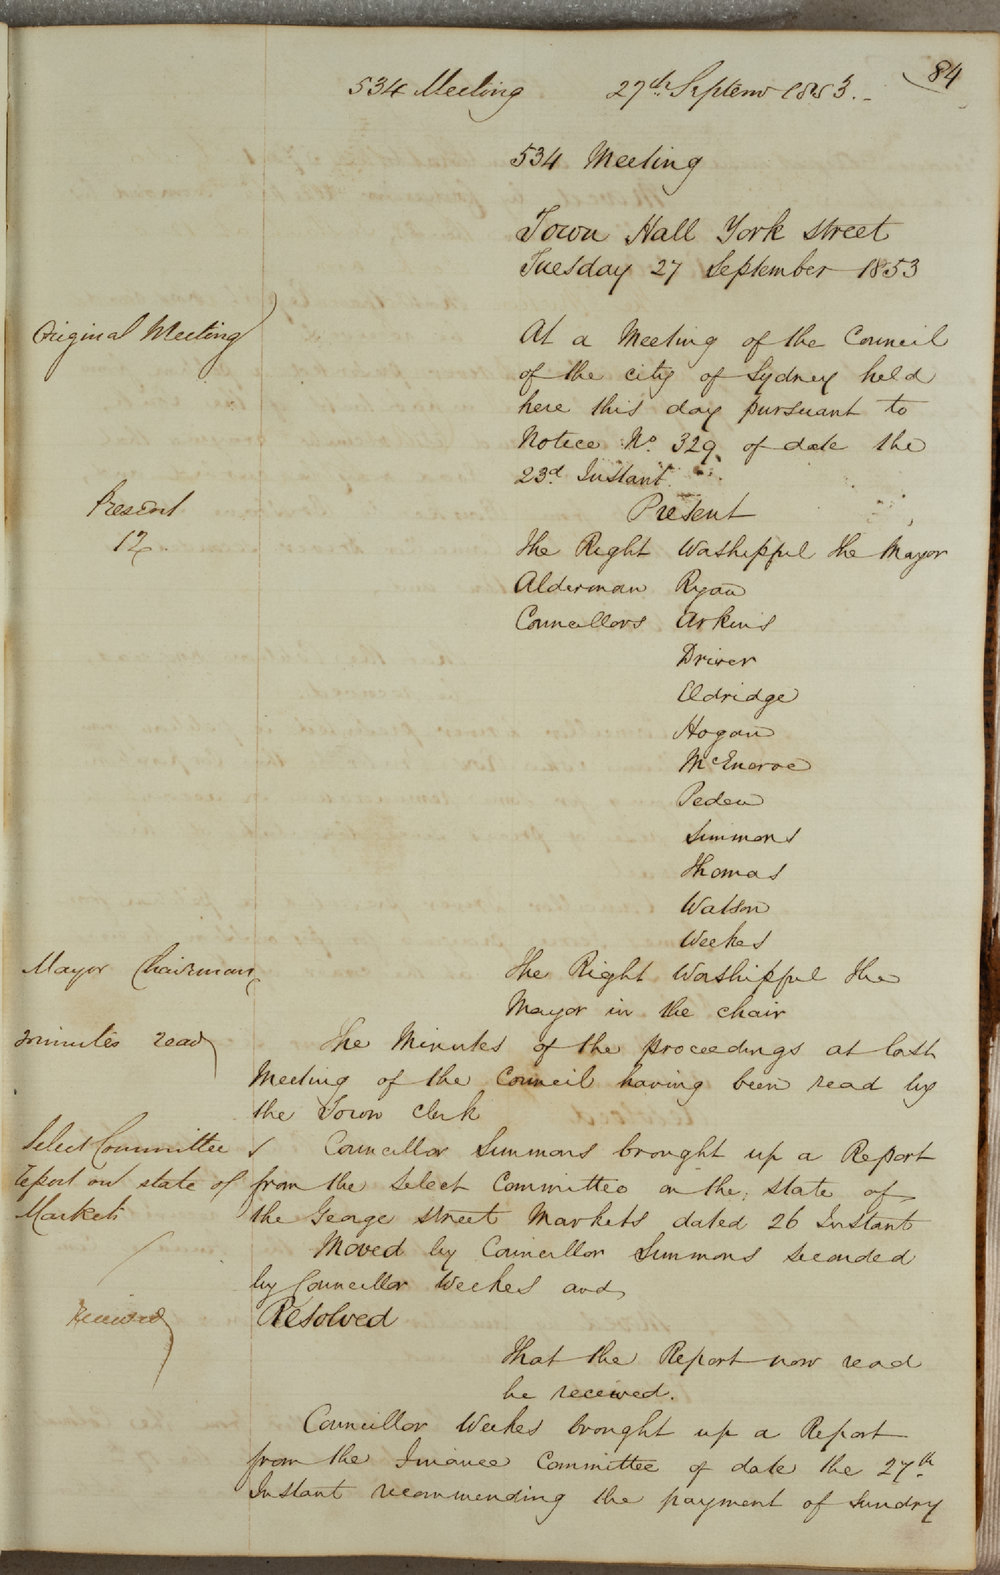 84
534 Meeting 27th Septemr 1853.-
534 Meeting
Town Hall York street
Tuesday 27 September 1853
Original Meeting
At a Meeting of the Council
of the city of Sydney held
here this day pursuant to
Notice No. 329 of date the
23d Instant
Present
12
Present
The Right Worshipful the Mayor
Alderman Ryan
Councillors Arkins
Driver
Eldridge
Hogan
McEncroe
Peden
Simmons
Thomas
Watson
Weekes
Mayor Chairman
The Right Worshipful the
Mayor in the chair
Minutes read
The Minutes of the proceedings at last
Meeting of the Council having been read by
the Town Clerk
Select Committee
report on state of
Markets
Councillor Simmons brought up a Report
from the Select Committee on the state of
the George street Markets dated 26 Instant
Moved by Councillor Simmons seconded
by Councillor Weekes and
Received
Resolved
That the Report now read
be received.
Councillor Weekes brought up a Report
from the Finance Committee of date the 27th
Instant recommending the payment of Sundry